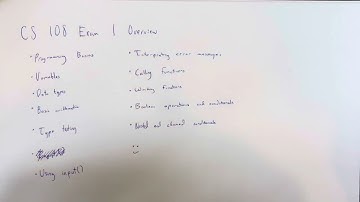 CS 108 Exam 1 Overview
· Programming Basics
· Variables
· Data types
· Basic arithmetic
· Type testing
· Using input()
· Interpreting error messages
· Calling functions
· Writing functions
· Boolean operations and conditionals
· Nested and chained conditionals
:)